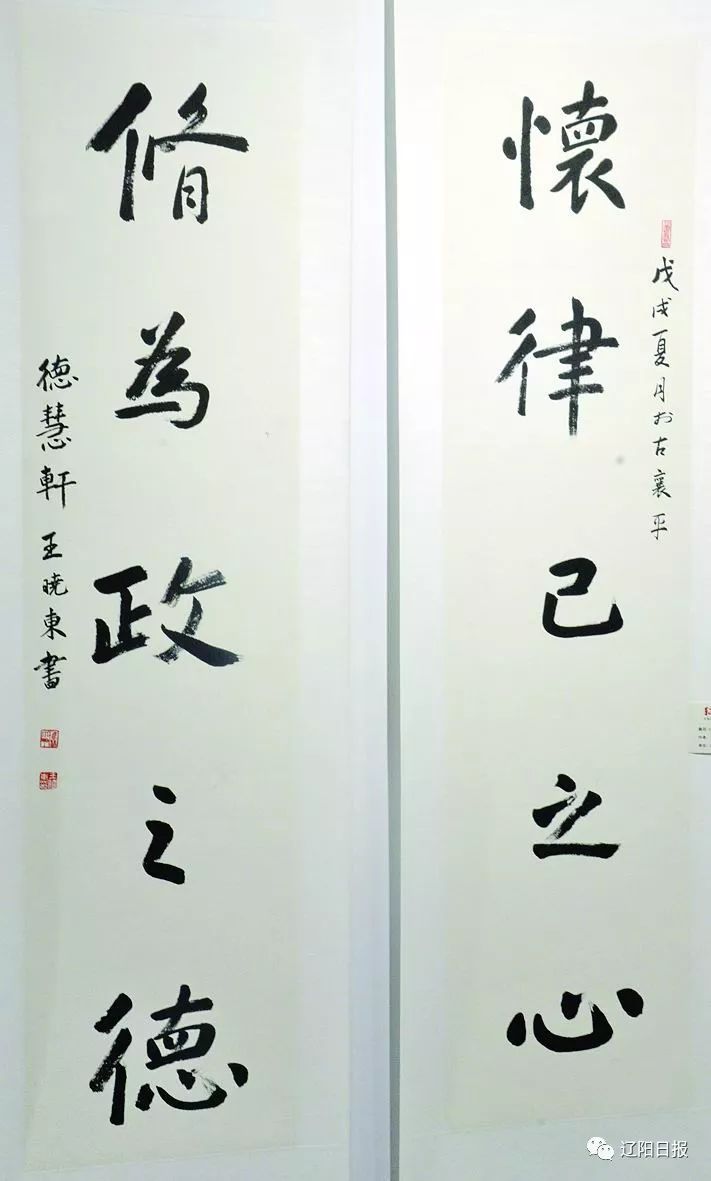 戊戌夏月於古襄平
懷律己之心
脩為政之德
德慧軒王曉東書
辽阳日报